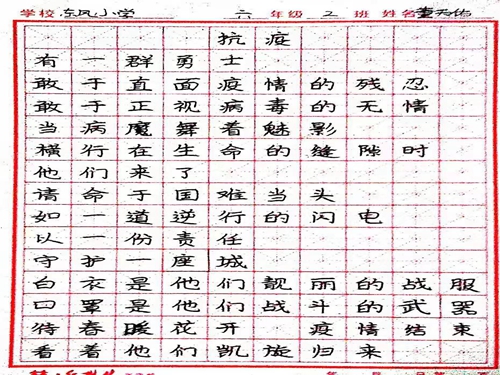 学校 东风小学 六 年级 2 班 姓名 董天佑
抗疫
有一群勇士
敢于直面疫情的残忍
敢于正视病毒的无情
当病魔舞着魅影
横行在生命的缝隙时
他们来了
请命于国难当头
如一道逆行的闪电
以一份责任
守护一座城
白衣是他们靓丽的战服
口罩是他们战斗的武器
待春暖花开 疫情结束
看着他们凯旋归来